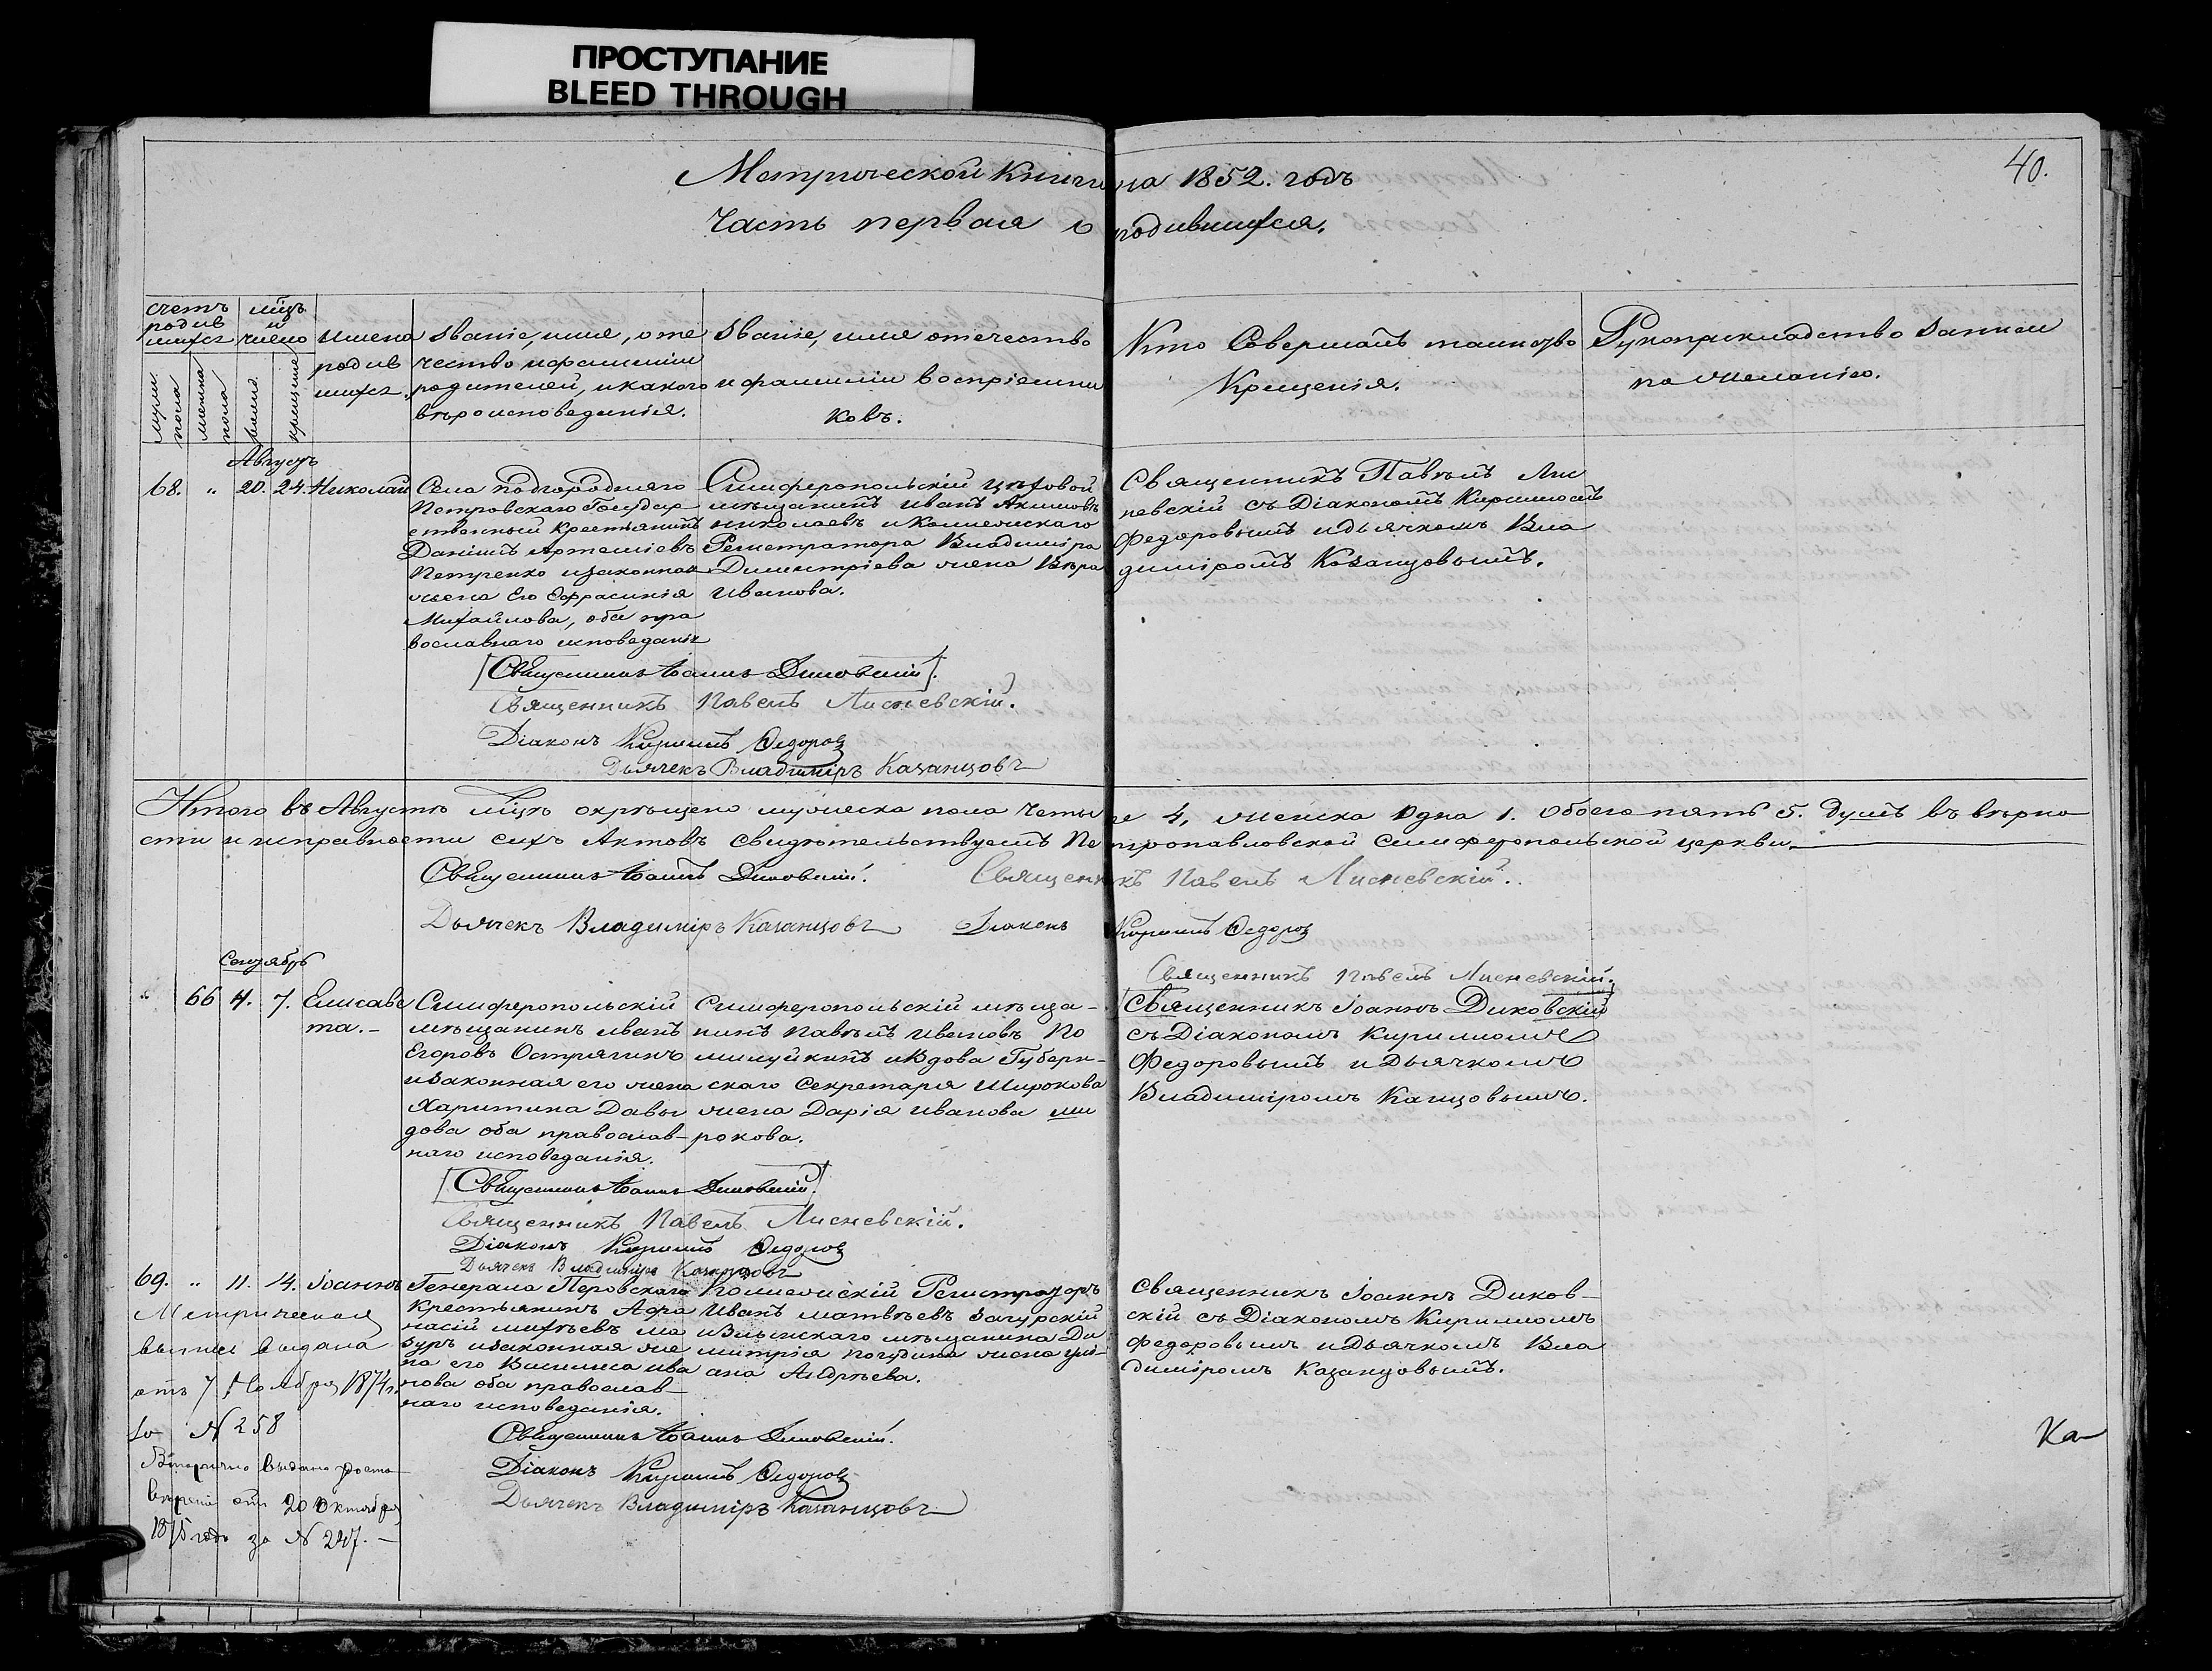 ПРОСТУПАНИЕ
BLEED THROUGH
40.
Метрической Книги на 1852. годъ
Часть первая о родившихся.
счетъ родив шихся
мужеска пола
женска пола
мѣсъ и число
рожд.
крещение
Имена родив шихся.
Званіе, имя, оте
чество и фамиліи
родителей, и какого
вѣроисповеданія.
Званіе, имя отечество
и фамиліи воспріемни
ковъ.
Кто Совершалъ таинство
Крещенія.
Рукоприкладство записи
по желанію.
Августъ
68. " 20. 24. Николай
Села подгороднаго
Петровскаго Государ
ственный Крестьянинъ
Даніилъ Артеміевъ
Петренко и законная
жена Его Ефросинія
Михайлова, оба пра
вославнаго исповеданія
Симферопольскій цеховой
мѣщанинъ Иванъ Акимовъ
Николаевъ и Коллежскаго
Регистратора Владиміра
Димитріева жена Вѣра
Иванова.
Священникъ Павелъ Лис
невскій съ Діакономъ Кирилломъ
Федоровымъ и дьячкомъ Вла
диміромъ Казанцовымъ.
Священникъ Іоаннъ Диковскій.
Священникъ Павелъ Лисневскій.
Діаконъ Кириллъ Федоровъ
Дьячекъ Владиміръ Казанцовъ
Итого въ Августѣ мѣсяцѣ окрѣщено мужеска пола четыре 4, женска одна 1. обоего пять 5. душъ въ вѣрно
сти и исправности сихъ Актовъ свидѣтельствуемъ Петропавловской Симферопольской церкви.
Священникъ Іоаннъ Диковскій. Священникъ Павелъ Лисневскій.
Дьячекъ Владиміръ Казанцовъ Діаконъ Кириллъ Федоровъ
Сентябрь
" 66 4. 7. Елисаве
та.-
Симферопольскій
мѣщанинъ Иванъ
Егоровъ Острягинъ
и законная его жена
Харитина Давы
дова оба православ-
наго исповеданія.
Симферопольскій мѣща-
нинъ Павелъ Ивановъ По
милуйкинъ и вдова Губерн-
скаго Секретаря Широкова
жена Дарія Иванова Ши
рокова.
Священникъ Павелъ Лисневскій.
Священникъ Іоаннъ Диковскій
съ Діакономъ Кирилломъ
Федоровымъ и Дьячкомъ
Владиміромъ Канцовымъ.
Священникъ Іоаннъ Диковскій.
Священникъ Павелъ Лисневскій.
Діаконъ Кириллъ Федоровъ
Дьячекъ Владиміръ Казанцовъ
69. " 11. 14. Іоаннъ
Генерала Перовскаго
Крестьянинъ Афа
насій Михѣевъ Ма
зуръ и законная же
на его Василиса Ива
нова оба православ-
наго исповеданія.
Коллежскій Регистраторъ
Иванъ Матвѣевъ Загурскій
и мѣщанина Ди
митрія Погудина жена Улі-
ана Андрѣева.
Священникъ Іоаннъ Диков-
скій съ Діакономъ Кирилломъ
Федоровымъ и Дьячкомъ Вла
диміромъ Казанцовымъ.
Метрическая
выпись выдана
отъ 7 Ноября 1874 г.
за № 258
Вторично выдано удосто
вѣреніе отъ 20 Октября
1875 года за № 247. -
Священникъ Іоаннъ Диковскій.
Діаконъ Кириллъ Федоровъ
Дьячекъ Владиміръ Казанцовъ
Ка-